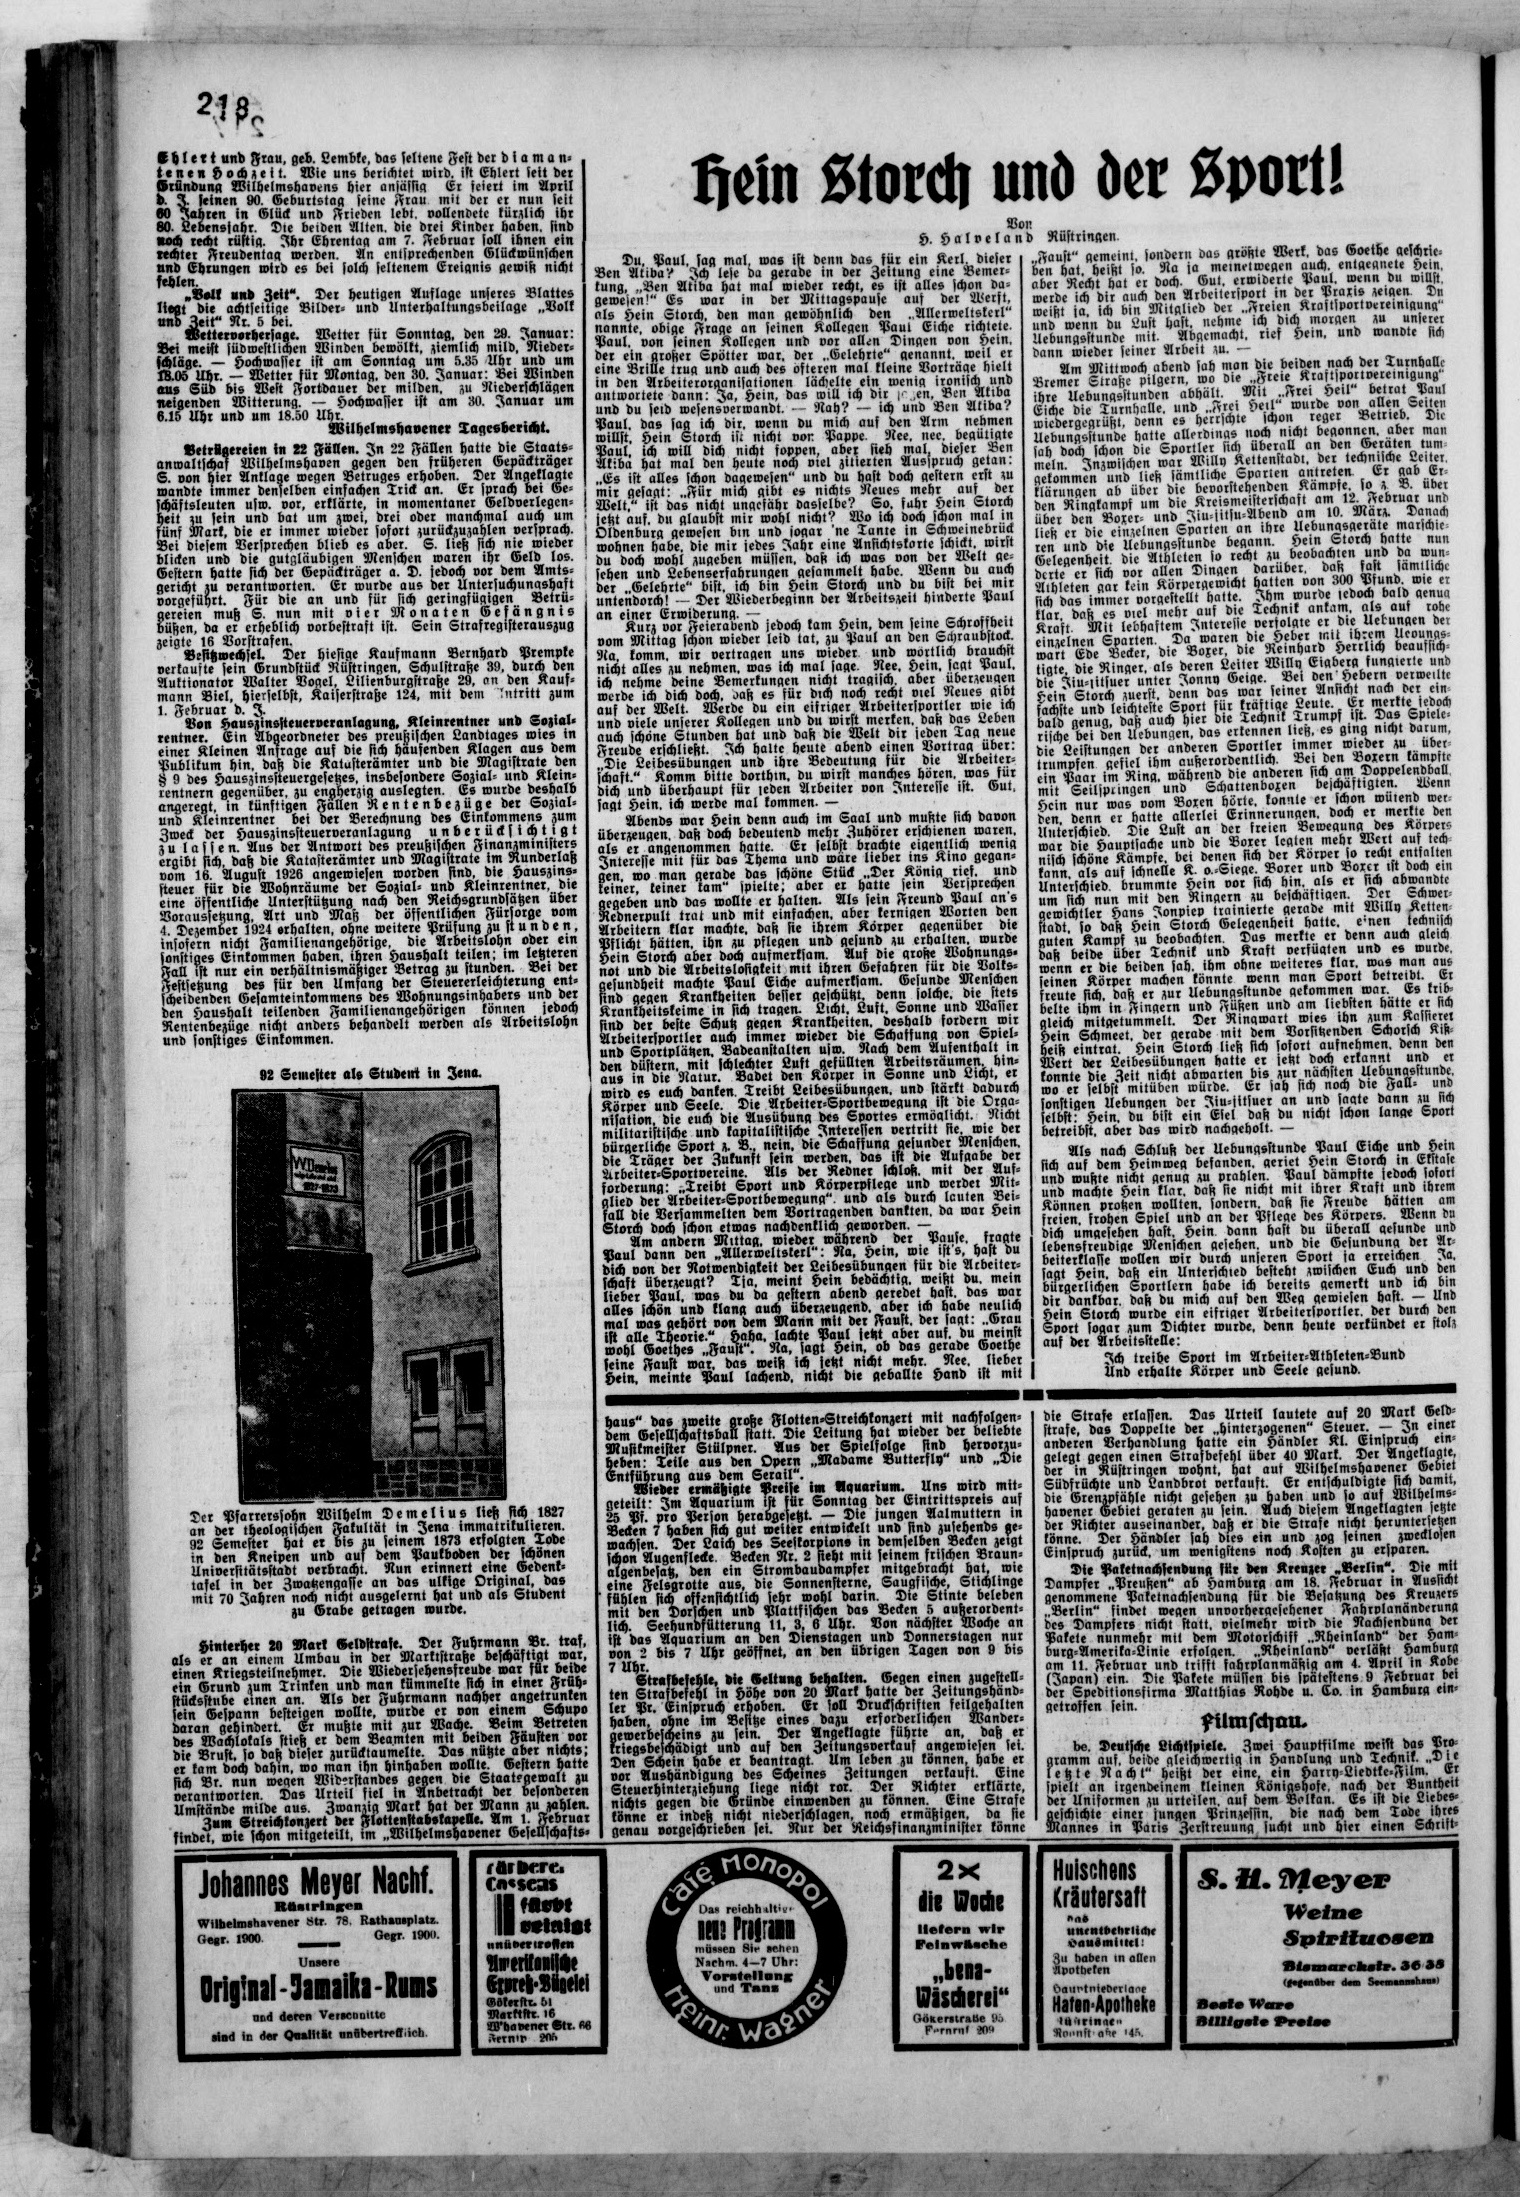 218
Ehlert und Frau, geb. Lembke, das seltene Fest der diaman-
tenen Hochzeit. Wie uns berichtet wird, ist Ehlert seit der
Gründung Wilhelmshavens hier ansässig Er feiert im April
d. J. seinen 90. Geburtstag seine Frau mit der er nun seit
60 Jahren in Glück und Frieden lebt, vollendete kürzlich ihr
80. Lebensjahr. Die beiden Alten, die drei Kinder haben, sind
noch recht rüstig. Ihr Ehrentag am 7. Februar soll ihnen ein
rechter Freudentag werden. An entsprechenden Glückwünschen
und Ehrungen wird es bei solch seltenem Ereignis gewiß nicht
fehlen.
„Volk und Zeit“. Der heutigen Auflage unseres Blattes
liegt die achtseitige Bilder- und Unterhaltungsbeilage „Volk
und Zeit“ Nr. 5 bei.
Wettervorhersage. Wetter für Sonntag, den 29. Januar:
Bei meist südwestlichen Winden bewölkt, ziemlich mild, Nieder-
schläge. — Hochwasser ist am Sonntag um 5.35 Uhr und um
18.05 Uhr. — Wetter für Montag, den 30. Januar: Bei Winden
aus Süd bis West Fortdauer der milden, zu Niederschlägen
neigenden Witterung. — Hochwasser ist am 30. Januar um
6.15 Uhr und um 18.50 Uhr.
Wilhelmshavener Tagesbericht.
Betrügereien in 22 Fällen. In 22 Fällen hatte die Staats-
anwaltschaf Wilhelmshaven gegen den früheren Gepäckträger
S. von hier Anklage wegen Betruges erhoben. Der Angeklagte
wandte immer denselben einfachen Trick an. Er sprach bei Ge-
schäftsleuten usw. vor, erklärte, in momentaner Geldverlegen-
heit zu sein und bat um zwei, drei oder manchmal auch um
fünf Mark, die er immer wieder sofort zurückzuzahlen versprach.
Bei diesem Versprechen blieb es aber. S. ließ sich nie wieder
blicken und die gutgläubigen Menschen waren ihr Geld los.
Gestern hatte sich der Gepäckträger a. D. jedoch vor dem Amts-
gericht zu verantworten. Er wurde aus der Untersuchungshaft
vorgeführt. Für die an und für sich geringfügigen Betrü-
gereien muß S. nun mit vier Monaten Gefängnis
büßen, da er erheblich vorbestraft ist. Sein Strafregisterauszug
zeigte 16 Vorstrafen.
Besitzwechsel. Der hiesige Kaufmann Bernhard Prempke
verkaufte sein Grundstück Rüstringen, Schulstraße 39, durch den
Auktionator Walter Vogel, Lilienburgstraße 29, an den Kauf-
mann Biel, hierselbst, Kaiserstraße 124, mit dem Antritt zum
1. Februar d. J.
Von Hauszinssteuerveranlagung, Kleinrentner und Sozial-
rentner. Ein Abgeordneter des preußischen Landtages wies in
einer Kleinen Anfrage auf die sich häufenden Klagen aus dem
Publikum hin, daß die Katasterämter und die Magistrate den
§ 9 des Hauszinssteuergesetzes, insbesondere Sozial- und Klein-
rentnern gegenüber, zu engherzig auslegten. Es wurde deshalb
angeregt, in künftigen Fällen Rentenbezüge der Sozial-
und Kleinrentner bei der Berechnung des Einkommens zum
Zweck der Hauszinssteuerveranlagung unberücksichtigt
zu lassen. Aus der Antwort des preußischen Finanzministers
ergibt sich, daß die Katasterämter und Magistrate im Runderlaß
vom 16. August 1926 angewiesen worden sind, die Hauszins-
steuer für die Wohnräume der Sozial- und Kleinrentner, die
eine öffentliche Unterstützung nach den Reichsgrundsätzen über
Voraussetzung, Art und Maß der öffentlichen Fürsorge vom
4. Dezember 1924 erhalten, ohne weitere Prüfung zu stunden,
insofern nicht Familienangehörige, die Arbeitslohn oder ein
sonstiges Einkommen haben, ihren Haushalt teilen; im letzteren
Fall ist nur ein verhältnismäßiger Betrag zu stunden. Bei der
Festsetzung des für den Umfang der Steuererleichterung ent-
scheidenden Gesamteinkommens des Wohnungsinhabers und der
den Haushalt teilenden Familienangehörigen können jedoch
Rentenbezüge nicht anders behandelt werden als Arbeitslohn
und sonstiges Einkommen.
92 Semester als Student in Jena.
W. Demelius
1827-1873
Der Pfarrerssohn Wilhelm Demelius ließ sich 1827
an der theologischen Fakultät in Jena immatrikulieren.
92 Semester hat er bis zu seinem 1873 erfolgten Tode
in den Kneipen und auf dem Paukboden der schönen
Universitätsstadt verbracht. Nun erinnert eine Gedenk-
tafel in der Zwatzengasse an das ulkige Original, das
mit 70 Jahren noch nicht ausgelernt hat und als Student
zu Grabe getragen wurde.
Hinterher 20 Mark Geldstrafe. Der Fuhrmann Br. traf,
als er an einem Umbau in der Marktstraße beschäftigt war,
einen Kriegsteilnehmer. Die Wiedersehensfreude war für beide
ein Grund zum Trinken und man kümmelte sich in einer Früh-
stücksstube einen an. Als der Fuhrmann nachher angetrunken
sein Gespann besteigen wollte, wurde er von einem Schupo
daran gehindert. Er mußte mit zur Wache. Beim Betreten
des Wachlokals stieß er dem Beamten mit beiden Fäusten vor
die Brust, so daß dieser zurücktaumelte. Das nützte aber nichts;
er kam doch dahin, wo man ihn hinhaben wollte. Gestern hatte
sich Br. nun wegen Widerstandes gegen die Staatsgewalt zu
verantworten. Das Urteil fiel in Anbetracht der besonderen
Umstände milde aus. Zwanzig Mark hat der Mann zu zahlen.
Zum Streichkonzert der Flottenstabskapelle. Am 1. Februar
findet, wie schon mitgeteilt, im „Wilhelmshavener Gesellschafts-
Hein Storch und der Sport!
Von
H. Halveland Rüstringen.
Du, Paul, sag mal, was ist denn das für ein Kerl, dieser
Ben Akiba? Ich lese da gerade in der Zeitung eine Bemer-
kung, „Ben Akiba hat mal wieder recht, es ist alles schon da-
gewesen!“ Es war in der Mittagspause auf der Werft,
als Hein Storch, den man gewöhnlich den „Allerweltskerl“
nannte, obige Frage an seinen Kollegen Paul Eiche richtete.
Paul, von seinen Kollegen und vor allen Dingen von Hein,
der ein großer Spötter war, der „Gelehrte“ genannt, weil er
eine Brille trug und auch des öfteren mal kleine Vorträge hielt
in den Arbeiterorganisationen lächelte ein wenig ironisch und
antwortete dann: Ja, Hein, das will ich dir sagen, Ben Akiba
und du seid wesensverwandt. — Nah? — ich und Ben Akiba?
Paul, das sag ich dir, wenn du mich auf den Arm nehmen
willst, Hein Storch ist nicht von Pappe. Nee, nee, begütigte
Paul, ich will dich nicht foppen, aber sieh mal, dieser Ben
Akiba hat mal den heute noch viel zitierten Ausspruch getan:
„Es ist alles schon dagewesen“ und du hast doch gestern erst zu
mir gesagt: „Für mich gibt es nichts Neues mehr auf der
Welt,“ ist das nicht ungefähr dasselbe? So, fuhr Hein Storch
jetzt auf, du glaubst mir wohl nicht? Wo ich doch schon mal in
Oldenburg gewesen bin und sogar 'ne Tante in Schweinebrück
wohnen habe, die mir jedes Jahr eine Ansichtskarte schickt, wirst
du doch wohl zugeben müssen, daß ich was von der Welt ge-
sehen und Lebenserfahrungen gesammelt habe. Wenn du auch
der „Gelehrte“ bist, ich bin Hein Storch und du bist bei mir
untendorch! — Der Wiederbeginn der Arbeitszeit hinderte Paul
an einer Erwiderung. —
Kurz vor Feierabend jedoch kam Hein, dem seine Schroffheit
vom Mittag schon wieder leid tat, zu Paul an den Schraubstock.
Na, komm, wir vertragen uns wieder und wörtlich brauchst
nicht alles zu nehmen, was ich mal sage. Nee, Hein, sagt Paul,
ich nehme deine Bemerkungen nicht tragisch, aber überzeugen
werde ich dich doch, daß es für dich noch recht viel Neues gibt
auf der Welt. Werde du ein eifriger Arbeitersportler wie ich
und viele unserer Kollegen und du wirst merken, daß das Leben
auch schöne Stunden hat und daß die Welt dir jeden Tag neue
Freude erschließt. Ich halte heute abend einen Vortrag über:
„Die Leibesübungen und ihre Bedeutung für die Arbeiter-
schaft.“ Komm bitte dorthin, du wirst manches hören, was für
dich und überhaupt für jeden Arbeiter von Interesse ist. Gut,
sagt Hein, ich werde mal kommen. —
Abends war Hein denn auch im Saal und mußte sich davon
überzeugen, daß doch bedeutend mehr Zuhörer erschienen waren,
als er angenommen hatte. Er selbst brachte eigentlich wenig
Interesse mit für das Thema und wäre lieber ins Kino gegan-
gen, wo man gerade das schöne Stück „Der König rief, und
keiner, keiner kam“ spielte; aber er hatte sein Versprechen
gegeben und das wollte er halten. Als sein Freund Paul an's
Rednerpult trat und mit einfachen, aber kernigen Worten den
Arbeitern klar machte, daß sie ihrem Körper gegenüber die
Pflicht hätten, ihn zu pflegen und gesund zu erhalten, wurde
Hein Storch aber doch aufmerksam. Auf die große Wohnungs-
not und die Arbeitslosigkeit mit ihren Gefahren für die Volks-
gesundheit machte Paul Eiche aufmerksam. Gesunde Menschen
sind gegen Krankheiten besser geschützt, denn solche, die stets
Krankheitskeime in sich tragen. Licht, Luft, Sonne und Wasser
sind der beste Schutz gegen Krankheiten, deshalb fordern wir
Arbeitersportler auch immer wieder die Schaffung von Spiel-
und Sportplätzen, Badeanstalten usw. Nach dem Aufenthalt in
den düstern, mit schlechter Luft gefüllten Arbeitsräumen, hin-
aus in die Natur. Badet den Körper in Sonne und Licht, er
wird es euch danken. Treibt Leibesübungen, und stärkt dadurch
Körper und Seele. Die Arbeiter-Sportbewegung ist die Orga-
nisation, die euch die Ausübung des Sportes ermöglicht. Nicht
militaristische und kapitalistische Interessen vertritt sie, wie der
bürgerliche Sport z. B., nein, die Schaffung gesunder Menschen,
die Träger der Zukunft sein werden, das ist die Aufgabe der
Arbeiter-Sportvereine. Als der Redner schloß, mit der Auf-
forderung: „Treibt Sport und Körperpflege und werdet Mit-
glied der Arbeiter-Sportbewegung“ und als durch lauten Bei-
fall die Versammelten dem Vortragenden dankten, da war Hein
Storch doch schon etwas nachdenklich geworden. —
Am andern Mittag, wieder während der Pause, fragte
Paul dann den „Allerweltskerl“: Na, Hein, wie ist's, hast du
dich von der Notwendigkeit der Leibesübungen für die Arbeiter-
schaft überzeugt? Tja, meint Hein bedächtig, weißt du, mein
lieber Paul, was du da gestern abend geredet hast, das war
alles schön und klang auch überzeugend, aber ich habe neulich
mal was gehört von dem Mann mit der Faust, der sagt: „Grau
ist alle Theorie.“ Haha, lachte Paul jetzt aber auf, du meinst
wohl Goethes „Faust“. Na, sagt Hein, ob das gerade Goethe
seine Faust war, das weiß ich jetzt nicht mehr. Nee, lieber
Hein, meinte Paul lachend, nicht die geballte Hand ist mit
„Faust“ gemeint, sondern das größte Werk, das Goethe geschrie-
ben hat, heißt so. Na ja meinetwegen auch, entgegnete Hein,
aber Recht hat er doch. Gut, erwiderte Paul, wenn du willst,
werde ich dir auch den Arbeitersport in der Praxis zeigen. Du
weißt ja, ich bin Mitglied der „Freien Kraftsportvereinigung“
und wenn du Lust hast, nehme ich dich morgen zu unserer
Uebungsstunde mit. Abgemacht, rief Hein, und wandte sich
dann wieder seiner Arbeit zu. —
Am Mittwoch abend sah man die beiden nach der Turnhalle
Bremer Straße pilgern, wo die „Freie Kraftsportvereinigung“
ihre Uebungsstunden abhält. Mit „Frei Heil“ betrat Paul
Eiche die Turnhalle, und „Frei Heil“ wurde von allen Seiten
wiedergegrüßt, denn es herrschte schon reger Betrieb. Die
Uebungsstunde hatte allerdings noch nicht begonnen, aber man
sah doch schon die Sportler sich überall an den Geräten tum-
meln. Inzwischen war Willy Kettenstadt, der technische Leiter,
gekommen und ließ sämtliche Sparten antreten. Er gab Er-
klärungen ab über die bevorstehenden Kämpfe, so z. B. über
den Ringkampf um die Kreismeisterschaft am 12. Februar und
über den Boxer- und Jiu-jitsu-Abend am 10. März. Danach
ließ er die einzelnen Sparten an ihre Uebungsgeräte marschie-
ren und die Uebungsstunde begann. Hein Storch hatte nun
Gelegenheit, die Athleten so recht zu beobachten und da wun-
derte er sich vor allen Dingen darüber, daß fast sämtliche
Athleten gar kein Körpergewicht hatten von 300 Pfund, wie er
sich das immer vorgestellt hatte. Ihm wurde jedoch bald genug
klar, daß es viel mehr auf die Technik ankam, als auf rohe
Kraft. Mit lebhaftem Interesse verfolgte er die Uebungen der
einzelnen Sparten. Da waren die Heber mit ihrem Uebungs-
wart Ede Becker, die Boxer, die Reinhard Herrlich beaufsich-
tigte, die Ringer, als deren Leiter Willy Eigberg fungierte und
die Jiu-jitsuer unter Jonny Geige. Bei den Hebern verweilte
Hein Storch zuerst, denn das war seiner Ansicht nach der ein-
fachste und leichteste Sport für kräftige Leute. Er merkte jedoch
bald genug, daß auch hier die Technik Trumpf ist. Das Spiele-
rische bei den Uebungen, das erkennen ließ, es ging nicht darum,
die Leistungen der anderen Sportler immer wieder zu über-
trumpfen, gefiel ihm außerordentlich. Bei den Boxern kämpfte
ein Paar im Ring, während die anderen sich am Doppelendball,
mit Seilspringen und Schattenboxen beschäftigten. Wenn
Hein nur was vom Boxen hörte, konnte er schon wütend wer-
den, denn er hatte allerlei Erinnerungen, doch er merkte den
Unterschied. Die Lust an der freien Bewegung des Körpers
war die Hauptsache und die Boxer legten mehr Wert auf tech-
nisch schöne Kämpfe, bei denen sich der Körper so recht entfalten
kann, als auf schnelle K. o.-Siege. Boxer und Boxer ist doch ein
Unterschied, brummte Hein vor sich hin, als er sich abwandte
um sich nun mit den Ringern zu beschäftigen. Der Schwer-
gewichtler Hans Jonpiep trainierte gerade mit Willy Ketten-
stadt, so daß Hein Storch Gelegenheit hatte, einen technisch
guten Kampf zu beobachten. Das merkte er denn auch gleich,
daß beide über Technik und Kraft verfügten und es wurde,
wenn er die beiden sah, ihm ohne weiteres klar, was man aus
seinen Körper machen könnte wenn man Sport betreibt. Er
freute sich, daß er zur Uebungsstunde gekommen war. Es krib-
belte ihm in Fingern und Füßen und am liebsten hätte er sich
gleich mitgetummelt. Der Ringwart wies ihn zum Kassierer
Hein Schmeet, der gerade mit dem Vorsitzenden Schorsch Kiß-
heiß eintrat. Hein Storch ließ sich sofort aufnehmen, denn den
Wert der Leibesübungen hatte er jetzt doch erkannt und er
konnte die Zeit nicht abwarten bis zur nächsten Uebungsstunde,
wo er selbst mitüben würde. Er sah sich noch die Fall- und
sonstigen Uebungen der Jiu-jitsuer an und sagte dann zu sich
selbst: Hein, du bist ein Esel daß du nicht schon lange Sport
betreibst, aber das wird nachgeholt. —
Als nach Schluß der Uebungsstunde Paul Eiche und Hein
sich auf dem Heimweg befanden, geriet Hein Storch in Ekstase
und wußte nicht genug zu prahlen. Paul dämpfte jedoch sofort
und machte Hein klar, daß sie nicht mit ihrer Kraft und ihrem
Können protzen wollten, sondern, daß sie Freude hätten am
freien, frohen Spiel und an der Pflege des Körpers. Wenn du
dich umgesehen hast, Hein, dann hast du überall gesunde und
lebensfreudige Menschen gesehen, und die Gesundung der Ar-
beiterklasse wollen wir durch unseren Sport ja erreichen. Ja,
sagt Hein, daß ein Unterschied besteht zwischen Euch und den
bürgerlichen Sportlern habe ich bereits gemerkt und ich bin
dir dankbar, daß du mich auf den Weg gewiesen hast. — Und
Hein Storch wurde ein eifriger Arbeitersportler, der durch den
Sport sogar zum Dichter wurde, denn heute verkündet er stolz
auf der Arbeitsstelle:
Ich treibe Sport im Arbeiter-Athleten-Bund
Und erhalte Körper und Seele gesund.
haus“ das zweite große Flotten-Streichkonzert mit nachfolgen-
dem Gesellschaftsball statt. Die Leitung hat wieder der beliebte
Musikmeister Stülpner. Aus der Spielfolge sind hervorzu-
heben: Teile aus den Opern „Madame Butterfly“ und „Die
Entführung aus dem Serail“.
Wieder ermäßigte Preise im Aquarium. Uns wird mit-
geteilt: Im Aquarium ist für Sonntag der Eintrittspreis auf
25 Pf. pro Person herabgesetzt. — Die jungen Aalmuttern in
Becken 7 haben sich gut weiter entwickelt und sind zusehends ge-
wachsen. Der Laich des Seeskorpions in demselben Becken zeigt
schon Augenflecke. Becken Nr. 2 sieht mit seinem frischen Braun-
algenbesatz, den ein Strombaudampfer mitgebracht hat, wie
eine Felsgrotte aus, die Sonnensterne, Saugfische, Stichlinge
fühlen sich offensichtlich sehr wohl darin. Die Stinte beleben
mit den Dorschen und Plattfischen das Becken 5 außerordent-
lich. Seehundfütterung 11, 3, 6 Uhr. Von nächster Woche an
ist das Aquarium an den Dienstagen und Donnerstagen nur
von 2 bis 7 Uhr geöffnet, an den übrigen Tagen von 9 bis
7 Uhr.
Strafbefehle, die Geltung behalten. Gegen einen zugestell-
ten Strafbefehl in Höhe von 20 Mark hatte der Zeitungshänd-
ler Pr. Einspruch erhoben. Er soll Druckschriften feilgehalten
haben, ohne im Besitze eines dazu erforderlichen Wander-
gewerbescheins zu sein. Der Angeklagte führte an, daß er
kriegsbeschädigt und auf den Zeitungsverkauf angewiesen sei.
Den Schein habe er beantragt. Um leben zu können, habe er
vor Aushändigung des Scheines Zeitungen verkauft. Eine
Steuerhinterziehung liege nicht vor. Der Richter erklärte,
nichts gegen die Gründe einwenden zu können. Eine Strafe
könne er indeß nicht niederschlagen, noch ermäßigen, da sie
genau vorgeschrieben sei. Nur der Reichsfinanzminister könne
die Strafe erlassen. Das Urteil lautete auf 20 Mark Geld-
strafe, das Doppelte der „hinterzogenen“ Steuer. — In einer
anderen Verhandlung hatte ein Händler Kl. Einspruch ein-
gelegt gegen einen Strafbefehl über 40 Mark. Der Angeklagte,
der in Rüstringen wohnt, hat auf Wilhelmshavener Gebiet
Südfrüchte und Landbrot verkauft. Er entschuldigte sich damit,
die Grenzpfähle nicht gesehen zu haben und so auf Wilhelms-
havener Gebiet geraten zu sein. Auch diesem Angeklagten setzte
der Richter auseinander, daß er die Strafe nicht heruntersetzen
könne. Der Händler sah dies ein und zog seinen zwecklosen
Einspruch zurück, um wenigstens noch Kosten zu ersparen.
Die Paketnachsendung für den Kreuzer „Berlin“. Die mit
Dampfer „Preußen“ ab Hamburg am 18. Februar in Aussicht
genommene Paketnachsendung für die Besatzung des Kreuzers
„Berlin“ findet wegen unvorhergesehener Fahrplanänderung
des Dampfers nicht statt, vielmehr wird die Nachsendung der
Pakete nunmehr mit dem Motorschiff „Rheinland“ der Ham-
burg-Amerika-Linie erfolgen. „Rheinland“ verläßt Hamburg
am 11. Februar und trifft fahrplanmäßig am 4. April in Kobe
(Japan) ein. Die Pakete müssen bis spätestens 9 Februar bei
der Speditionsfirma Matthias Rohde u. Co. in Hamburg ein-
getroffen sein.
Filmschau.
be. Deutsche Lichtspiele. Zwei Hauptfilme weist das Pro-
gramm auf, beide gleichwertig in Handlung und Technik. „Die
letzte Nacht“ heißt der eine, ein Harry-Liedtke-Film. Er
spielt an irgendeinem kleinen Königshofe, nach der Buntheit
der Uniformen zu urteilen, auf dem Balkan. Es ist die Liebes-
geschichte einer jungen Prinzessin, die nach dem Tode ihres
Mannes in Paris Zerstreuung sucht und hier einen Schrift-
Johannes Meyer Nachf.
Rüstringen
Wilhelmshavener Str. 78, Rathausplatz.
Gegr. 1900. Gegr. 1900.
Unsere
Original-Jamaika-Rums
und deren Verschnitte
sind in der Qualität unübertrefflich.
Färberei
Cassens
färbt
reinigt
unübertroffen
Amerikanische
Expreß-Bügelei
Gökerstr. 51
Marktstr. 16
W'havener Str. 66
Fernspr. 205
Café Monopol
Das reichhaltige
neue Programm
müssen Sie sehen
Nachm. 4–7 Uhr:
Vorstellung
und Tanz
Heinr. Wagner
2×
die Woche
liefern wir
Feinwäsche
„bena-
Wäscherei“
Gökerstraße 95
Fernruf 209
Huischens
Kräutersaft
das
unentbehrliche
Hausmittel!
Zu haben in allen
Apotheken
Hauptniederlage
Hafen-Apotheke
Rüstringen
145.
S. H. Meyer
Weine
Spirituosen
Bismarckstr. 36-38
(gegenüber dem Seemannshaus)
Beste Ware
Billigste Preise